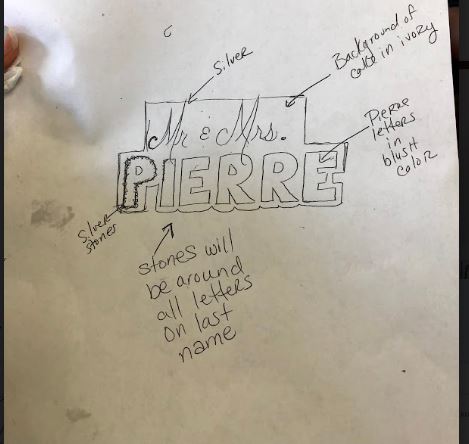 Silver
Background of
cake in ivory
Mr & Mrs.
PIERRE
Pierre
letters
in
blush
color
Silver
stones
stones will
be around
all letters
on last
name